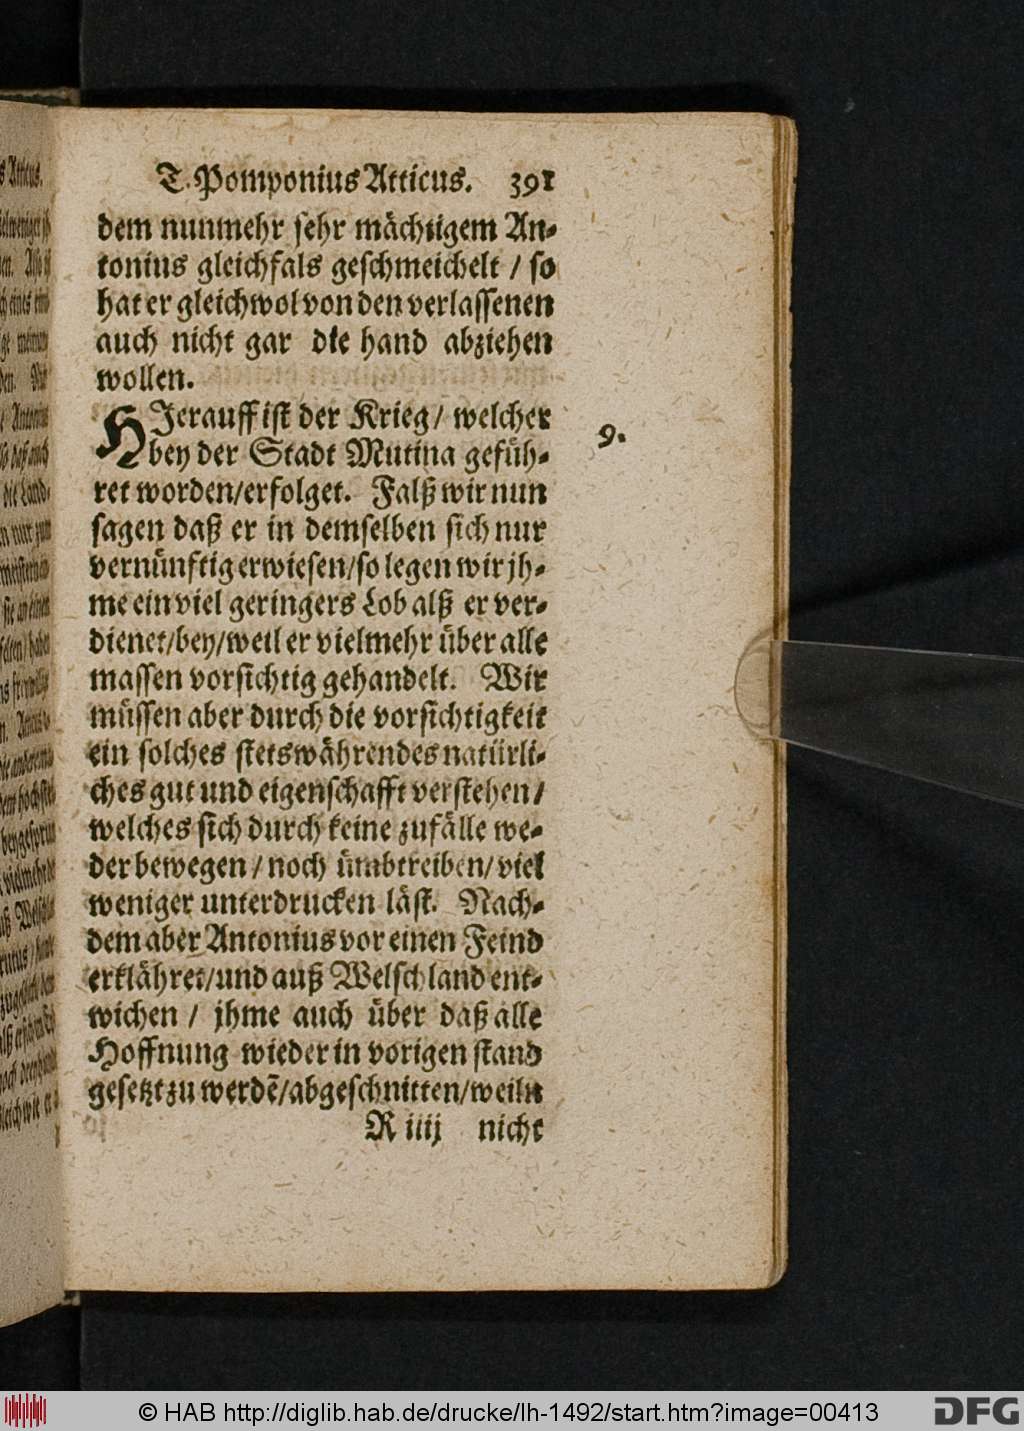 T. Pomponius Atticus. 391
dem nunmehr sehr mächtigem An-
tonius gleichfals geschmeichelt / so
hat er gleichwol von den verlassenen
auch nicht gar die hand abziehen
wollen.
HIerauff ist der Krieg / welcher
bey der Stadt Mutina gefüh-
ret worden/erfolget. Falß wir nun
sagen daß er in demselben sich nur
vernünftig erwiesen/so legen wir jh-
me ein viel geringers Lob alß er ver-
dienet/bey/weil er vielmehr über alle
massen vorsichtig gehandelt. Wir
müssen aber durch die vorsichtigkeit
ein solches stetswährendes natürli-
ches gut und eigenschafft verstehen /
welches sich durch keine zufälle we-
der bewegen / noch ümbtreiben/ viel
weniger unterdrucken läst. Nach-
dem aber Antonius vor einen Feind
erklähret/und auß Welschland ent-
wichen / jhme auch über daß alle
Hoffnung wieder in vorigen stand
gesetzt zu werdẽ/abgeschnitten/weiln
R iiij nicht
9.
© HAB http://diglib.hab.de/drucke/lh-1492/start.htm?image=00413
DFG